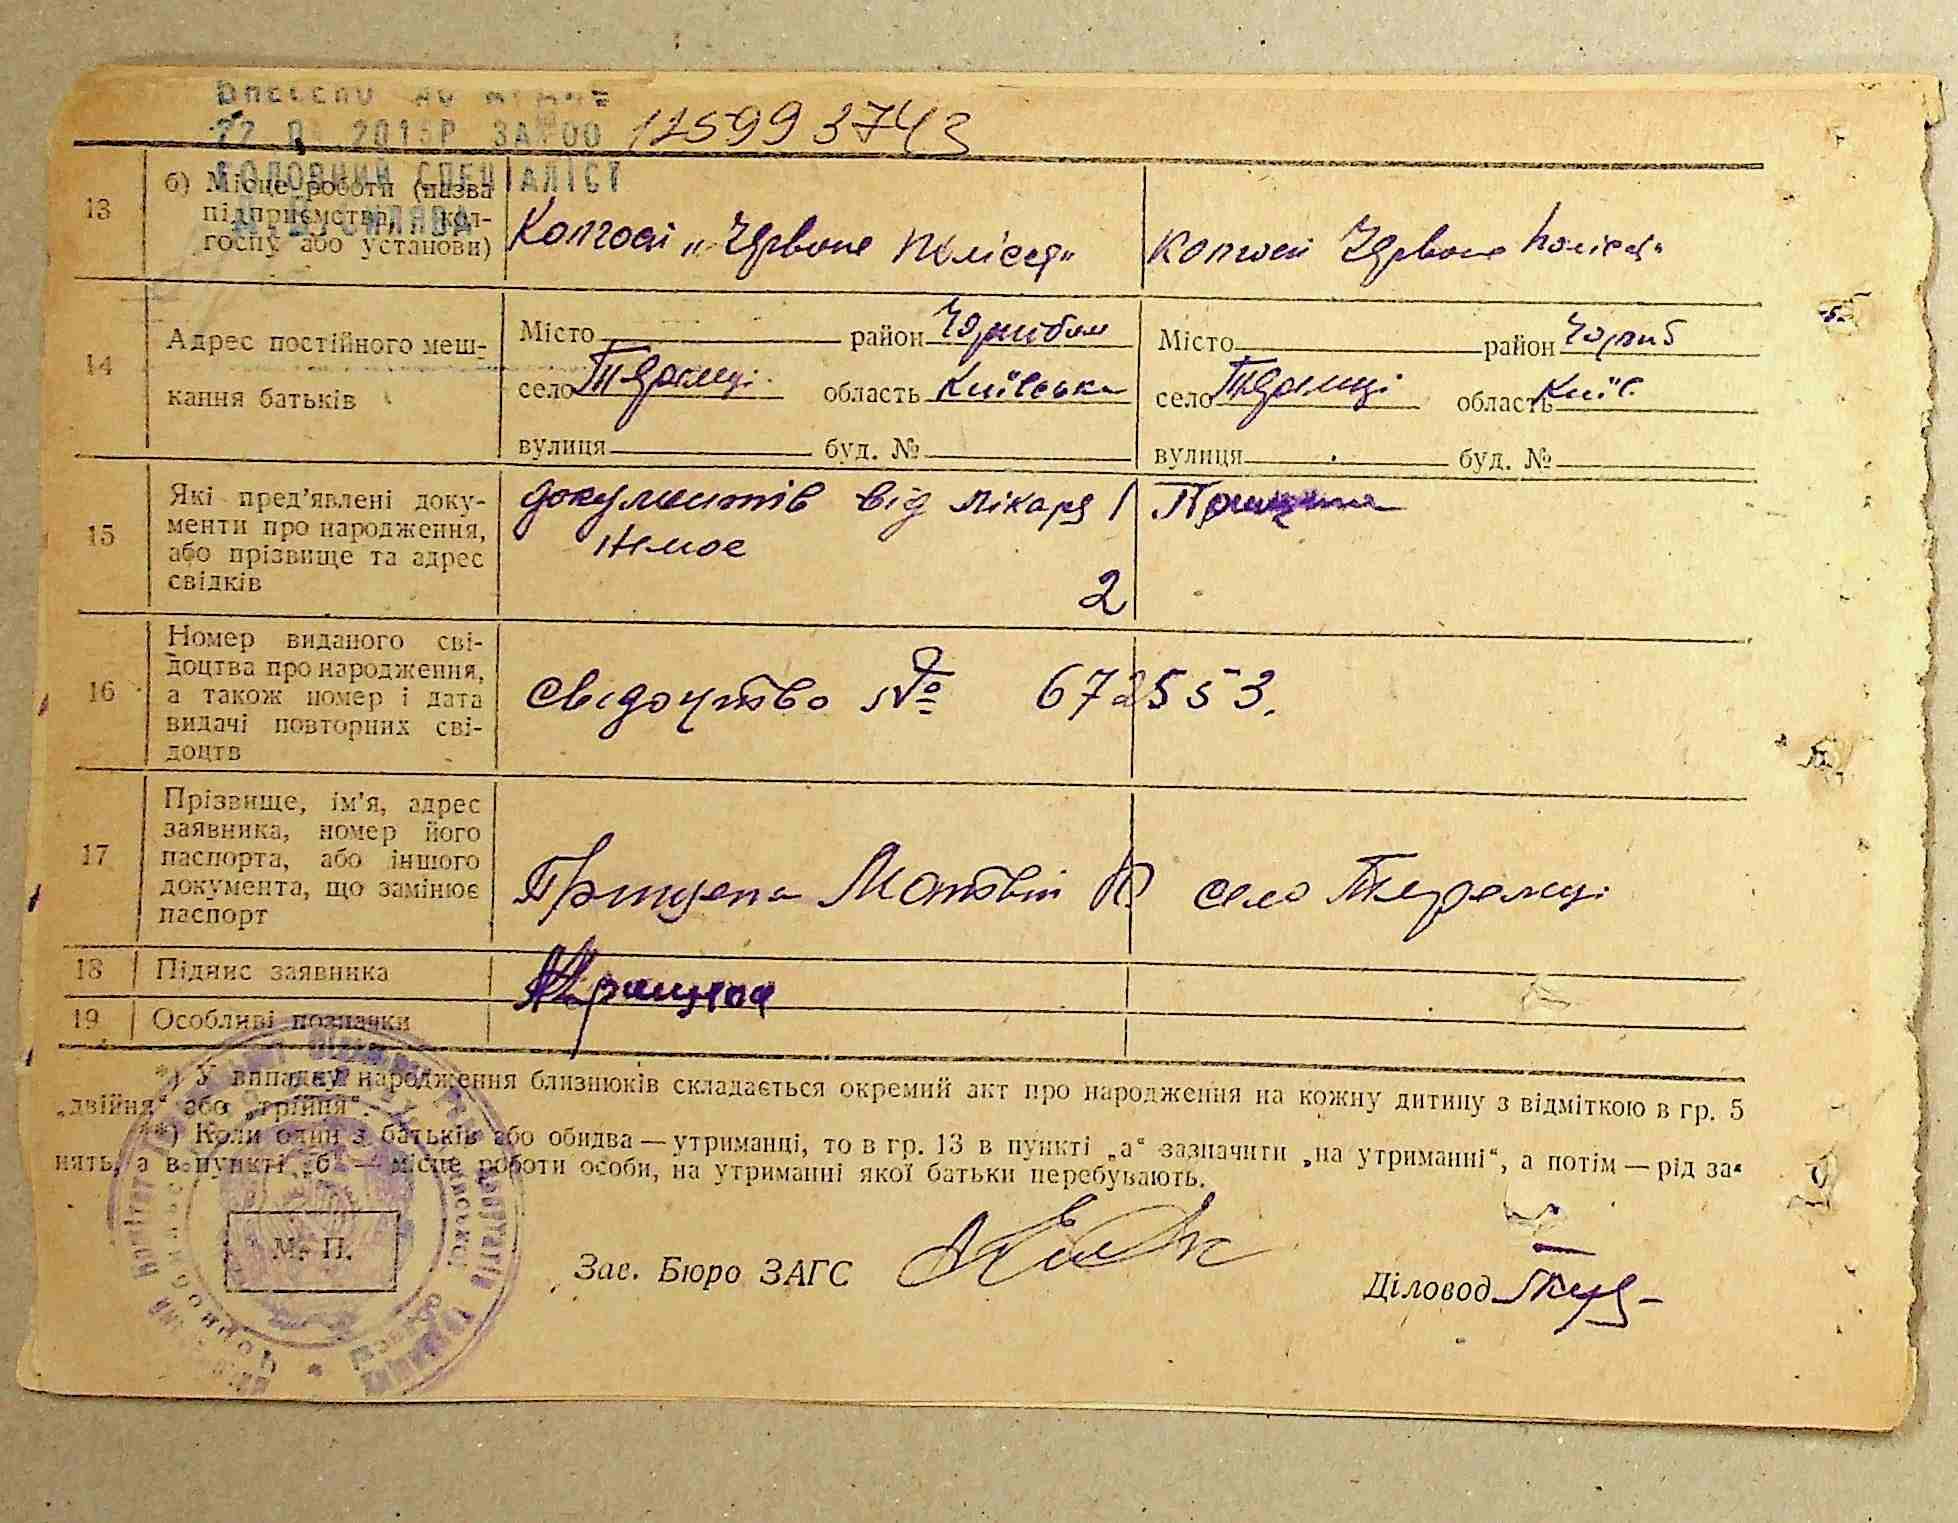 Внесено до
2015Р ЗА №00 125993743
ГОЛОВНИЙ СПЕЦІАЛІСТ
13 б) Місце роботи (назва підприємства, кол-госпу або установи)
Колгосп „Червоне Полісся“
колгосп Червоне Полісся“
14 Адрес постійного меш-
кання батьків
Місто район Чорнобил
село Теремці область Київська
вулиця буд. №
Місто район Чорноб
село Теремці область Київ.
вулиця буд. №
15 Які пред'явлені доку-
менти про народження,
або прізвище та адрес
свідків
документів від лікаря
немає
2
16 Номер виданого сві-
доцтва про народження,
а також номер і дата
видачі повторних сві-
доцтв
свідоцтво № 672553.
17 Прізвище, ім'я, адрес
заявника, номер його
паспорта, або іншого
документа, що замінює
паспорт
Матвій село Теремці
18 Підпис заявника
19 Особливі позначки
*) У випадку народження близнюків складається окремий акт про народження на кожну дитину з відміткою в гр. 5
„двійня“ або „трійня“.
**) Коли один з батьків або обидва — утриманці, то в гр. 13 в пункті „а“ зазначити „на утриманні“, а потім — рід за-
нять, а в пункті „б“ — місце роботи особи, на утриманні якої батьки перебувають.
М. П.
Зав. Бюро ЗАГС
Діловод